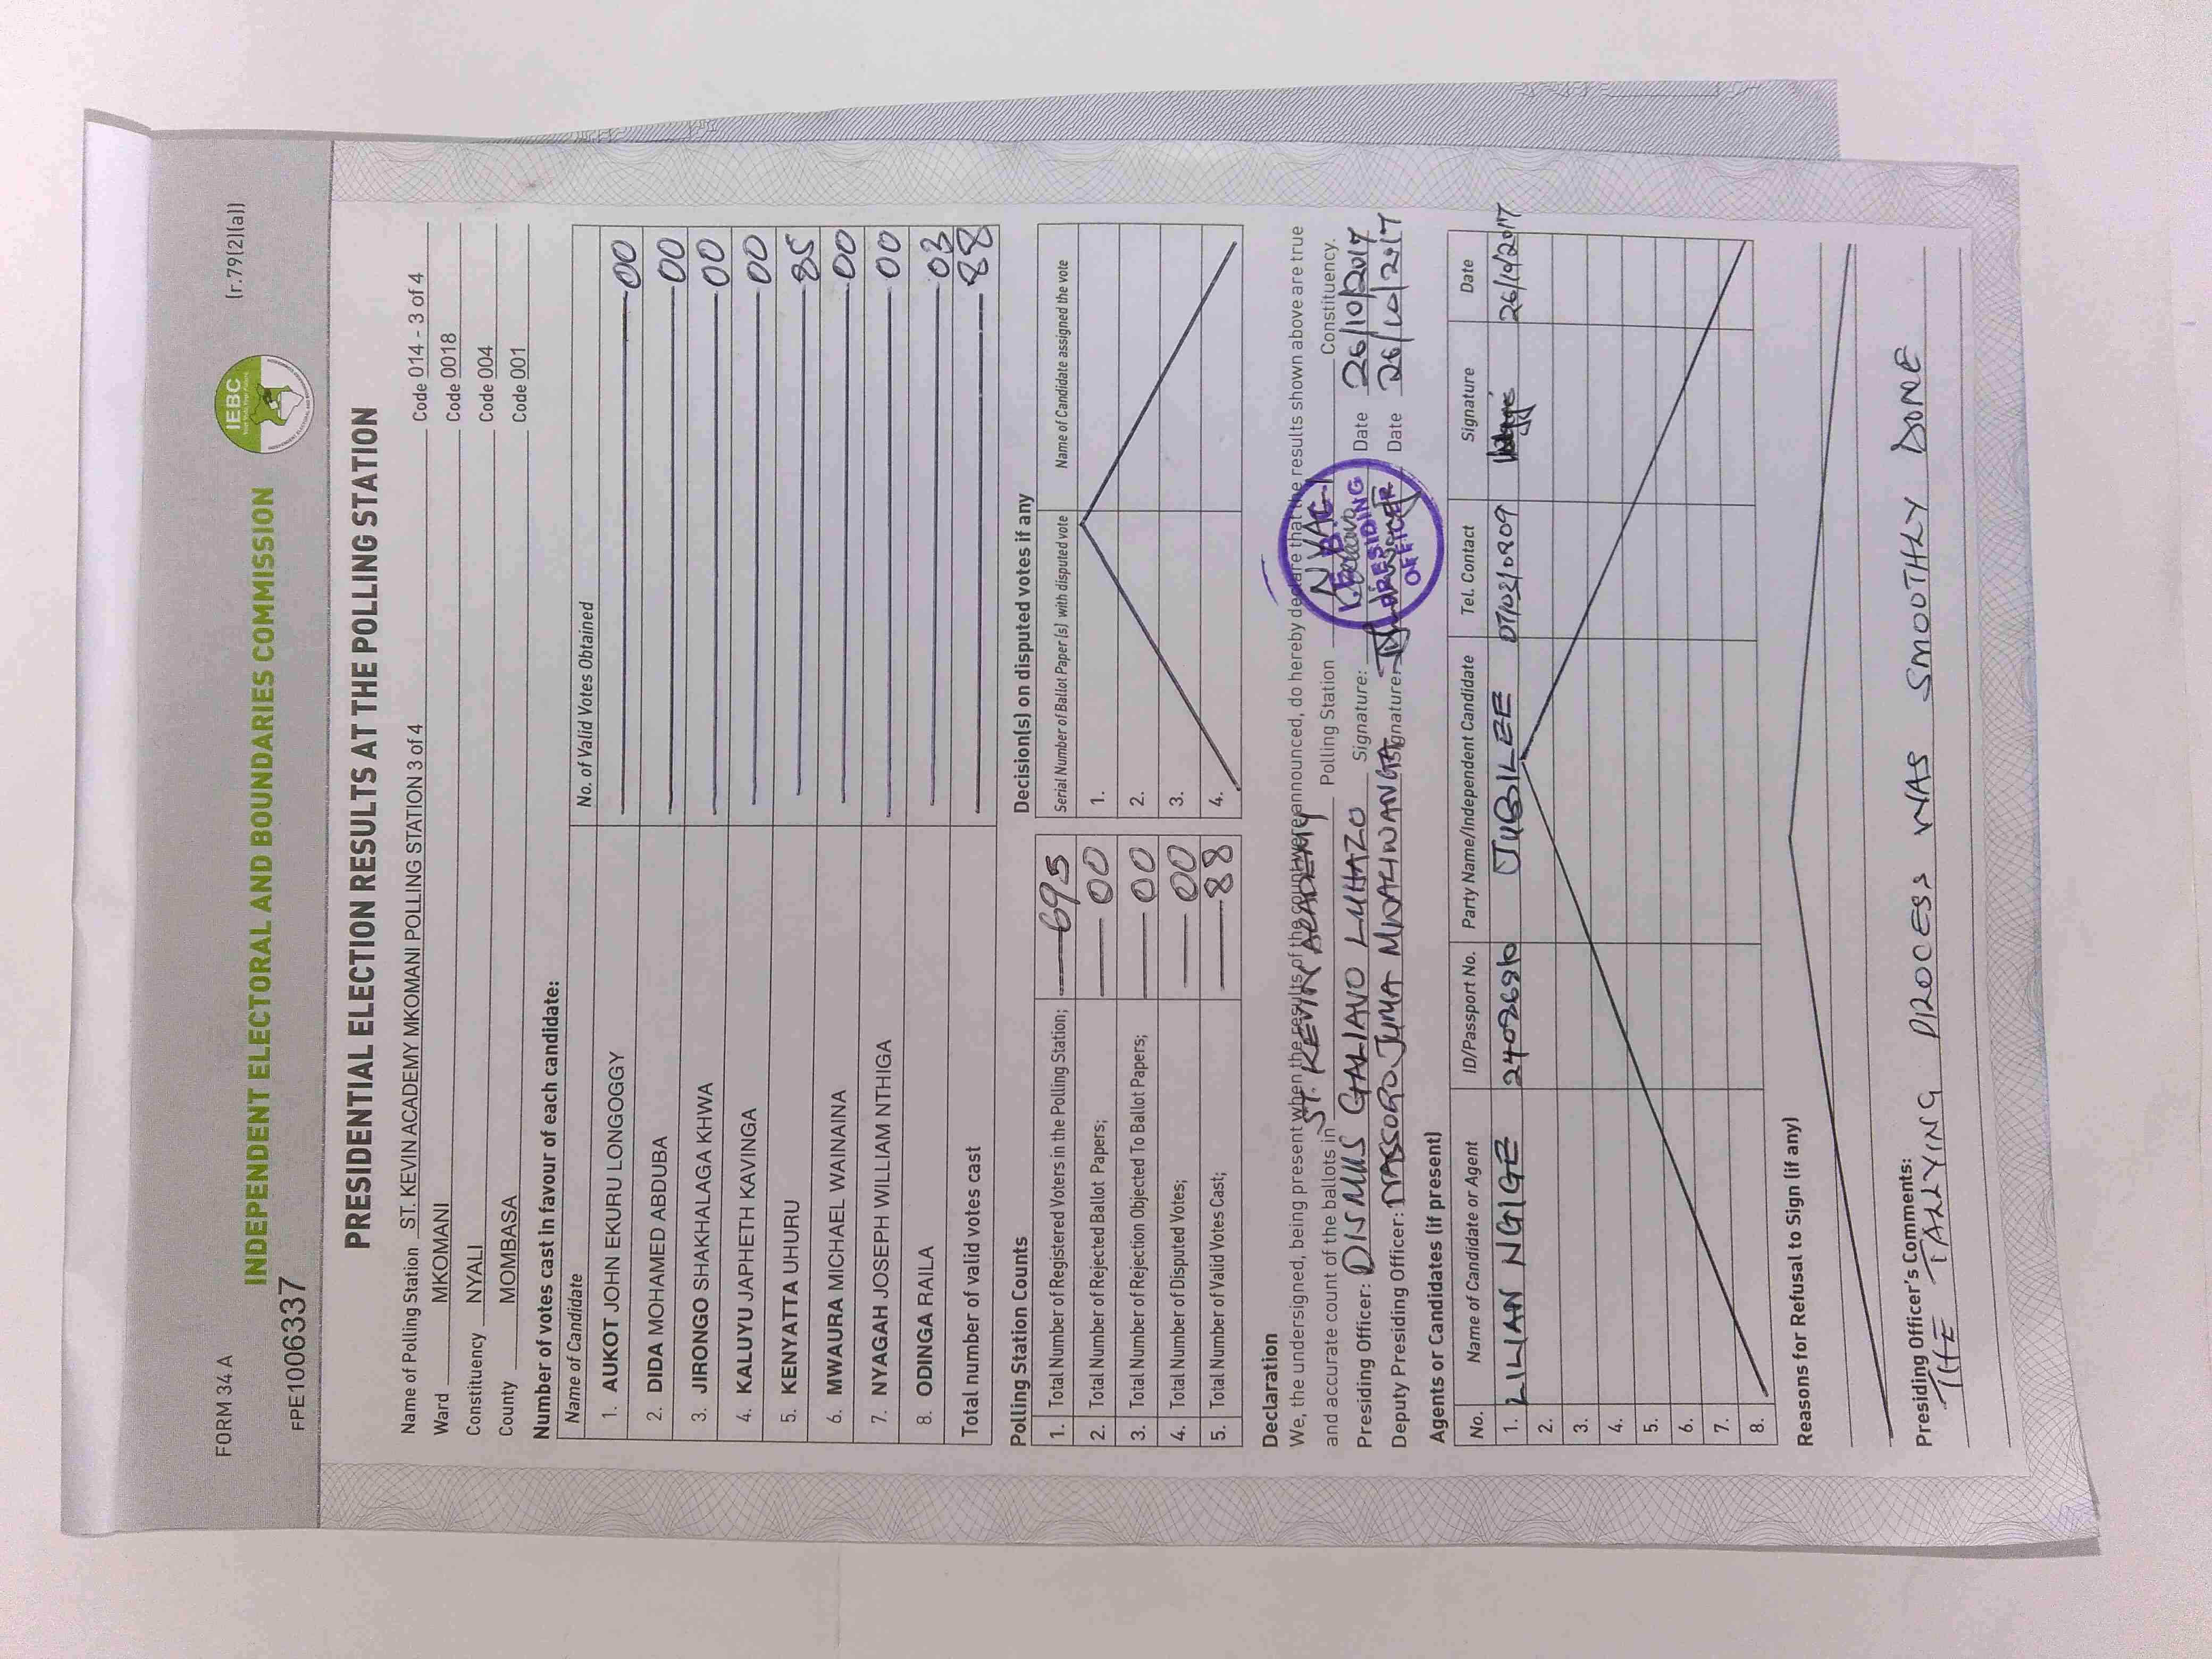 FORM 34 A
(r.79(2)(a))
IEBC
INDEPENDENT ELECTORAL AND BOUNDARIES COMMISSION
FPE1006337
PRESIDENTIAL ELECTION RESULTS AT THE POLLING STATION
Name of Polling Station ST. KEVIN ACADEMY MKOMANI POLLING STATION 3 of 4 Code 014 - 3 of 4
Ward MKOMANI Code 0018
Constituency NYALI Code 004
County MOMBASA Code 001
Number of votes cast in favour of each candidate:
Name of Candidate No. of Valid Votes Obtained
1. AUKOT JOHN EKURU LONGOGGY 00
2. DIDA MOHAMED ABDUBA 00
3. JIRONGO SHAKHALAGA KHWA 00
4. KALUYU JAPHETH KAVINGA 00
5. KENYATTA UHURU 85
6. MWAURA MICHAEL WAINAINA 00
7. NYAGAH JOSEPH WILLIAM NTHIGA 00
8. ODINGA RAILA 03
Total number of valid votes cast 88
Polling Station Counts
1. Total Number of Registered Voters in the Polling Station; 695
2. Total Number of Rejected Ballot Papers; 00
3. Total Number of Rejection Objected To Ballot Papers; 00
4. Total Number of Disputed Votes; 00
5. Total Number of Valid Votes Cast; 88
Decision(s) on disputed votes if any
Serial Number of Ballot Paper(s) with disputed vote Name of Candidate assigned the vote
1.
2.
3.
4.
Declaration
We, the undersigned, being present when the results of the count were announced, do hereby declare that the results shown above are true
and accurate count of the ballots in ST. KEVIN ACADEMY Polling Station NYALI Constituency.
Presiding Officer: DISMUS GALIANO LUHAZO Signature: Date 26/10/2017
Deputy Presiding Officer: JUMA Signature: Date 26/10/2017
PRESIDING
OFFICER
Agents or Candidates (if present)
No. Name of Candidate or Agent ID/Passport No. Party Name/Independent Candidate Tel. Contact Signature Date
1. LILIAN NGIGE JUBILEE 26/10/2017
2.
3.
4.
5.
6.
7.
8.
Reasons for Refusal to Sign (if any)
Presiding Officer's Comments:
THE TALLYING PROCESS WAS SMOOTHLY DONE